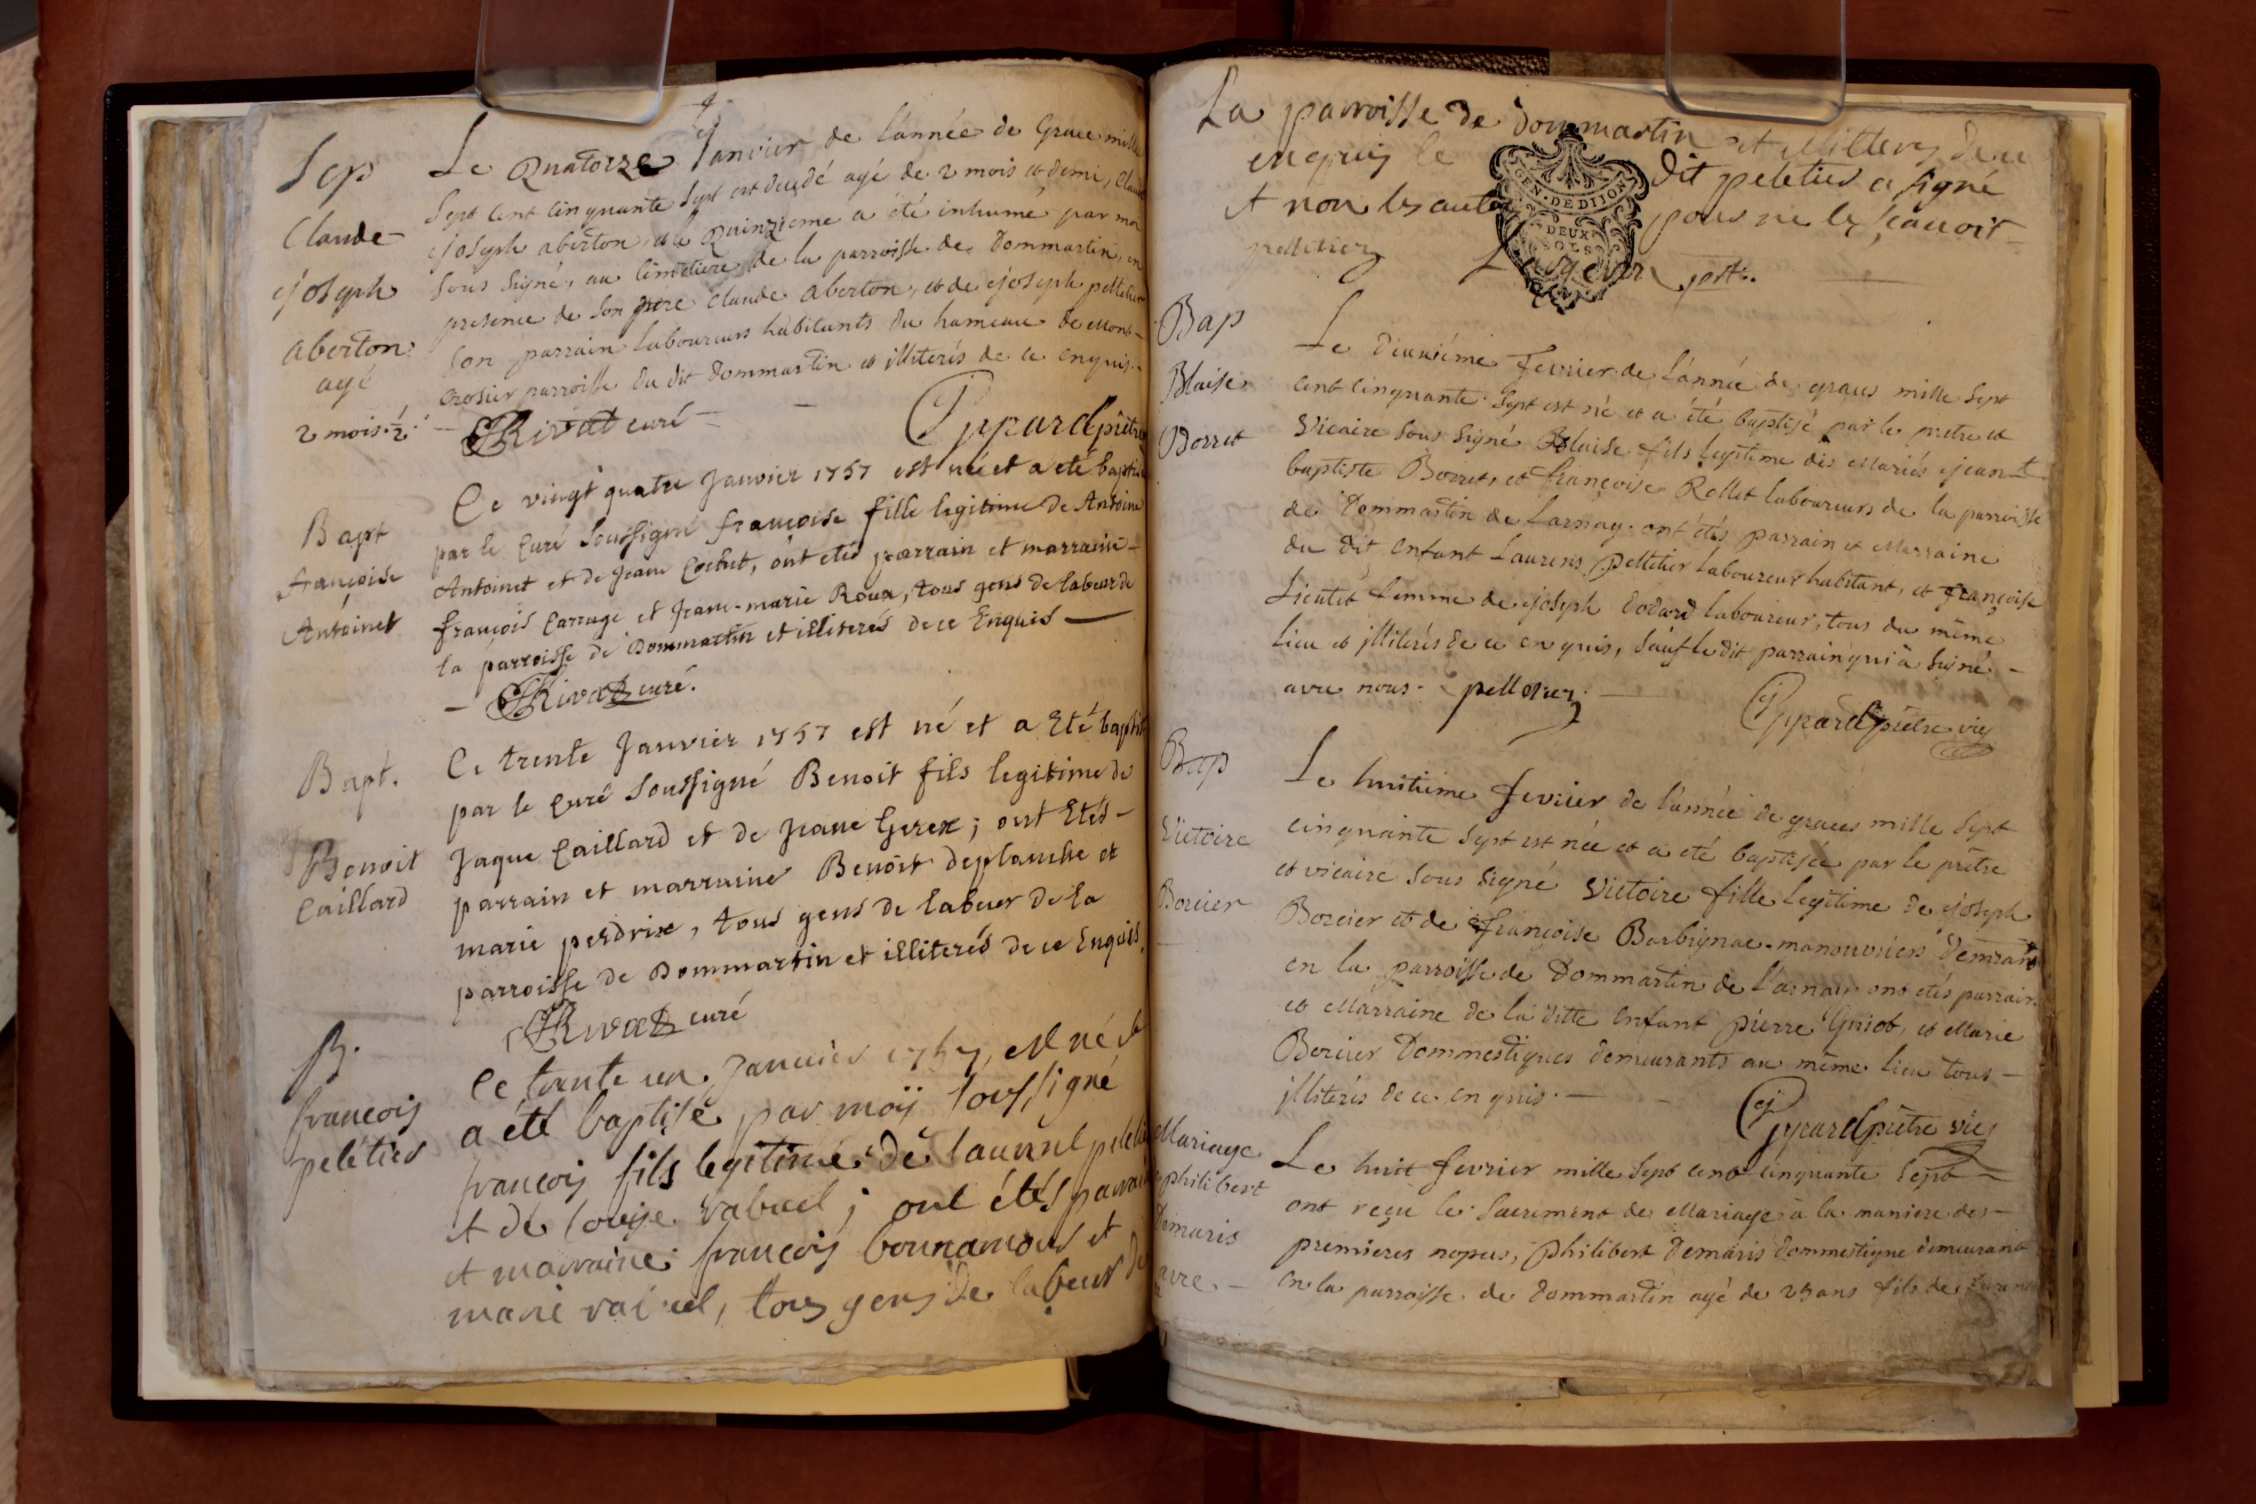 Sep
Claude
joseph
aberton
agé
2 mois ½
Le Quatorze Janvier de l'année de Grace mille
Sept cent cinquante Sept est decedé agé de 2 mois et demi, Claude
joseph aberton, et le Quinzieme a été inhumé par moi
sous signé, au cimetiere de la parroisse de Dommartin, en
presence de son pere Claude aberton, et de joseph pelletier
son parrain laboureurs habitants du hameau de Mont-
crosier parroisse du dit Dommartin et illiterés de ce enquis.
Rivat curé
pprard prêtre
Bapt
françoise
Antoinet
Ce vingt quatre Janvier 1757 est née et a eté baptisée
par le Curé Soussigné françoise fille legitime de Antoine
Antoinet et de Jeane Cochet, ont etés parrain et marraine
françois Carruge et Jeane-marie Roux, tous gens de labeur de
la parroisse de Dommartin et illiterés de ce Enquis
Rivat curé.
Bapt.
Benoit
Caillard
Ce trente Janvier 1757 est né et a Eté baptisé
par le Curé Soussigné Benoit fils legitime de
Jaque Caillard et de Jeane Gerex; ont Etés
parrain et marraine Benoit deplanche et
marie perdrix, tous gens de labeur de la
parroisse de Dommartin et illiterés de ce Enquis.
Rivat curé
B.
francois
peletier
Ce trante un Janvier 1757, est né et
a été baptisé par moÿ soussigné
francois fils legitime de laurent peletier
et de louise rabuel; ont étés parrain
et marraine francois bonnamour et
marie rabuel, tous gens de labeur de
La parroisse de dommartin et illiterés de ce
enquis le dit peletier a signé
et non les autres pour ne le scauoir
pelletier
Bap
Blaise
Borret
Le deuxiéme fevrier de l'année de graces mille Sept
cent cinquante Sept est né et a été baptisé par le pretre et
vicaire sous signé Blaise fils legitime des Mariés jean
baptiste Borret, et françoise Rollet laboureurs de la parroisse
de Dommartin de Larnay. ont étés parrain et Marraine
du dit enfant Laurens pelletier laboureur habitant, et françoise
Lieutet femme de joseph Bodard laboureur, tous du même
lieu et illiterés de ce enquis, sauf le dit parrain qui a signé
avec nous. pelletier
pprard prêtre vic
Bap
Victoire
Borcier
Le huitieme fevrier de l'année de graces mille Sept
cinquante Sept est née et a été baptisée par le prêtre
et vicaire sous signé Victoire fille legitime de joseph
Borcier et de françoise Barbignac manouvriers demrant
en la parroisse de Dommartin de l'arnay ont étés parrain
et Marraine de la ditte enfant pierre Guiot, et Marie
Borcier Dommestiques demeurants au même lieu tous
illiterés de ce enquis.
pprard prêtre vic
Mariage
philibert
Demaris
avec
Le huit fevrier mille Sept cent cinquante Sept
ont reçu le Sacrement de Mariage à la maniere des
premieres nopces, philibert Demaris Dommestique demeurant
en la parroisse de Dommartin agé de 25 ans fils de
GEN. DE DIJON
DEUX
SOLS